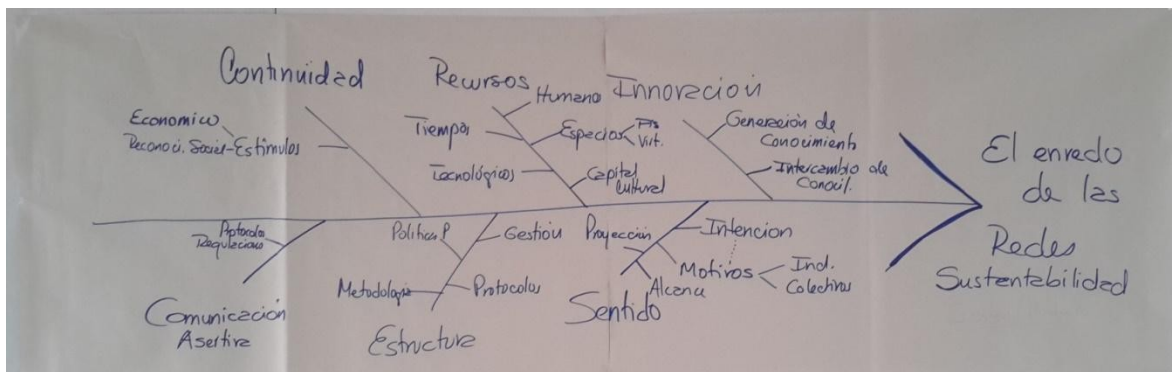 Continuidad
Economico
Reconoci. Social-Estimulos
Recursos
Humano
Tiempos
Espacios
Fís
Virt.
Tecnológicos
Capital
Cultural
Innovación
Generación de
Conocimiento
Intercambio de
Conoci.
El enredo
de las
Redes
Sustentabilidad
Protocolos
Regulaciones
Comunicación
Asertiva
Politicas P
Gestión
Metodologia
Protocolos
Estructura
Proyección
Intencion
Motivos
Ind.
Colectivos
Alcance
Sentido